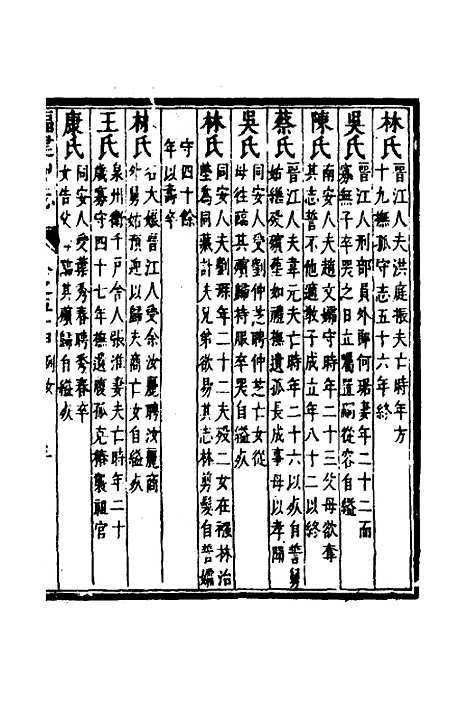 林氏晉江人夫洪庭振夫亡時年方
十九撫孤守志五十六年終
吳氏晉江人刑部員外郎何琚妻年二十二而
寡無子卒哭之日立囑置嗣從容自縊
陳氏南安人夫趙文孀守時年二十三父母欲奪
其志誓不他適教子成立年八十二以終
蔡氏晉江人夫韋元夫亡時年二十六以疾自誓舅
姑繼歿殯塟如禮撫遺孤長成事母以孝聞
吳氏同安人受劉仲芝聘仲芝亡女從
母往臨其殯歸持服卒哭自縊
林氏同安人夫劉琛年二十二夫歿二女在襁林治
塟爲同葬計夫兄弟欲易其志林剪髮自誓孀
守四十餘
年以壽卒
林氏石大娘晉江人受余汝麗聘汝麗商
外舅姑預迎以歸夫商亡女自縊灰
王氏泉州衞千戶舍人張淮妻夫亡時年二十
歲寡守四十七年撫遺腹孤克椿襲祖官
康氏同安人受葉秀春聘秀春卒
女告父母臨其殯歸自縊灰
福建通志